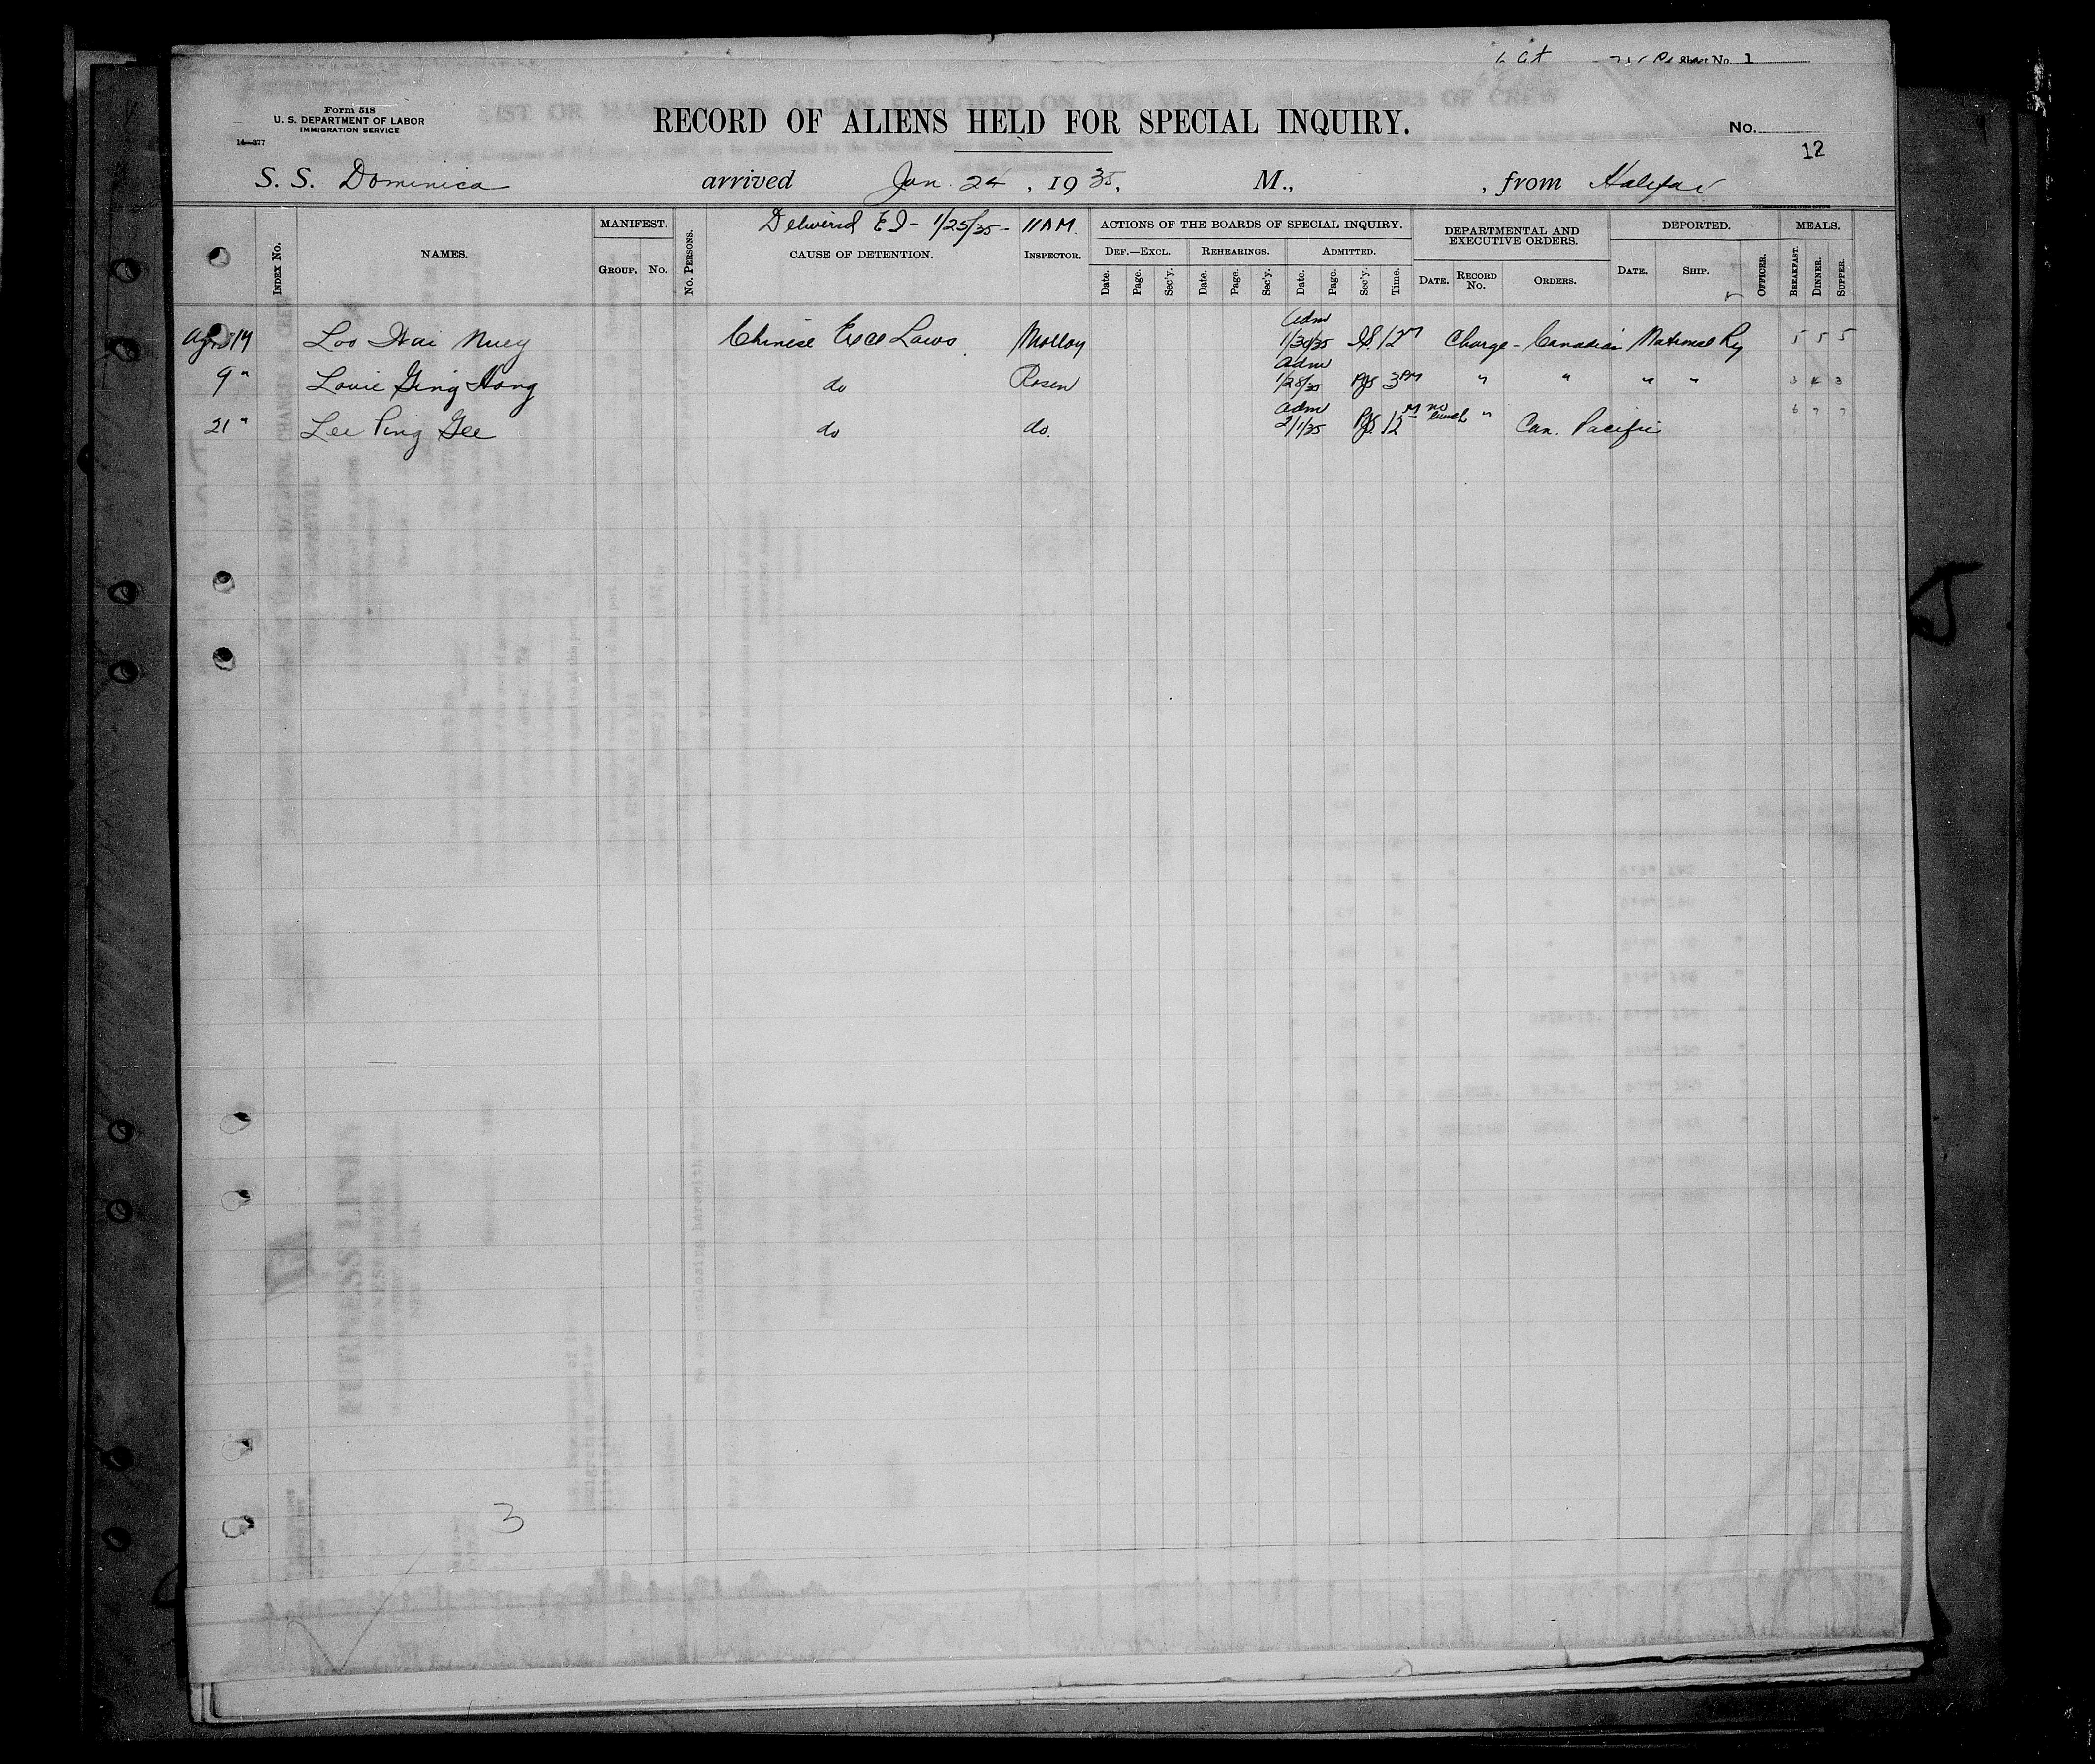 Sheet No. 1
Form 518
U. S. DEPARTMENT OF LABOR
IMMIGRATION SERVICE
14—577
RECORD OF ALIENS HELD FOR SPECIAL INQUIRY.
No.
12
S. S. Dominica arrived Jan. 24, 1935, M., , from Halifax
Delivered E I - 1/25/35 - 11 AM.
INDEX No. NAMES. MANIFEST. GROUP. No. No. PERSONS. CAUSE OF DETENTION. INSPECTOR.
ACTIONS OF THE BOARDS OF SPECIAL INQUIRY.
DEF.—EXCL. REHEARINGS. ADMITTED.
Date. Page. Sec'y. Date. Page. Sec'y. Date. Page. Sec'y. Time.
DEPARTMENTAL AND EXECUTIVE ORDERS.
DATE. RECORD No. ORDERS.
DEPORTED.
DATE. SHIP. OFFICER.
MEALS.
BREAKFAST. DINNER. SUPPER.
19 Loo Wai Nuey Chinese Excl Laws Molloy Adm 1/30/35 12 M Charge - Canadian National Ry 5 5 5
9 " Louie Ging Hong do Rosen Adm 1/28/35 3 PM " " " " 3 4 3
21 " Lee Ping Gee do do. Adm 2/1/35 12 M no lunch " Can. Pacific 6 7 7
3